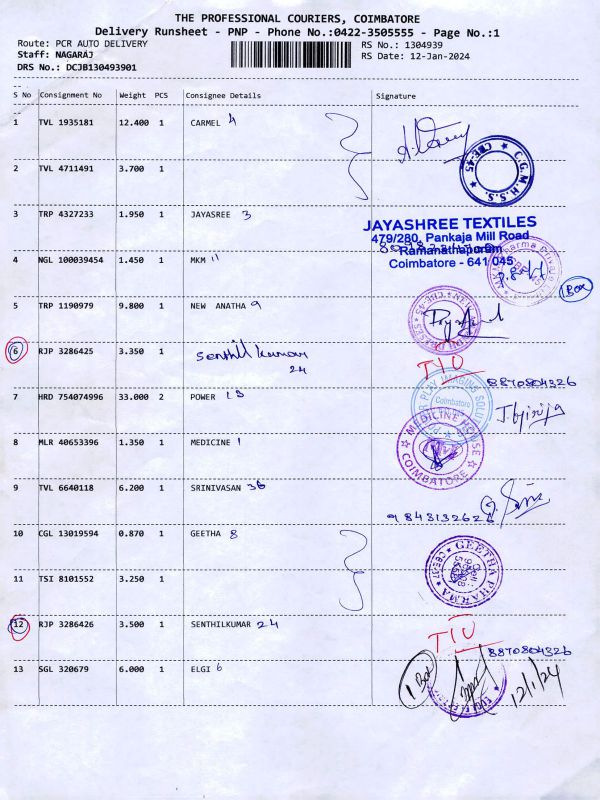 THE PROFESSIONAL COURIERS, COIMBATORE
Delivery Runsheet - PNP - Phone No.:0422-3505555 - Page No.:1
Route: PCR AUTO DELIVERY
RS No.: 1304939
Staff: NAGARAJ
RS Date: 12-Jan-2024
DRS No.: DCJB130493901
S No Consignment No Weight PCS Consignee Details Signature
1 TVL 1935181 12.400 1 CARMEL 4
CBE-45 C.G.M.H.S.S.
2 TVL 4711491 3.700 1
3 TRP 4327233 1.950 1 JAYASREE 3
JAYASHREE TEXTILES
479/280, Pankaja Mill Road
Ramanathapuram
Coimbatore - 641 045
4 NGL 100039454 1.450 1 MKM 11
1 Box
5 TRP 1190979 9.800 1 NEW ANATHA 9
6 RJP 3286425 3.350 1 Senthil kumar 24
TIU
8870804326
7 HRD 754074996 33.000 2 POWER 13
Coimbatore
8 MLR 40653396 1.350 1 MEDICINE 1
MEDICINE HOUSE COIMBATORE
9 TVL 6640118 6.200 1 SRINIVASAN 36
10 CGL 13019594 0.870 1 GEETHA 8
GEETHA PHARMA
11 TSI 8101552 3.250 1
12 RJP 3286426 3.500 1 SENTHILKUMAR 24
TIU
8870804326
13 SGL 320679 6.000 1 ELGI 6
1 Box
12/1/24